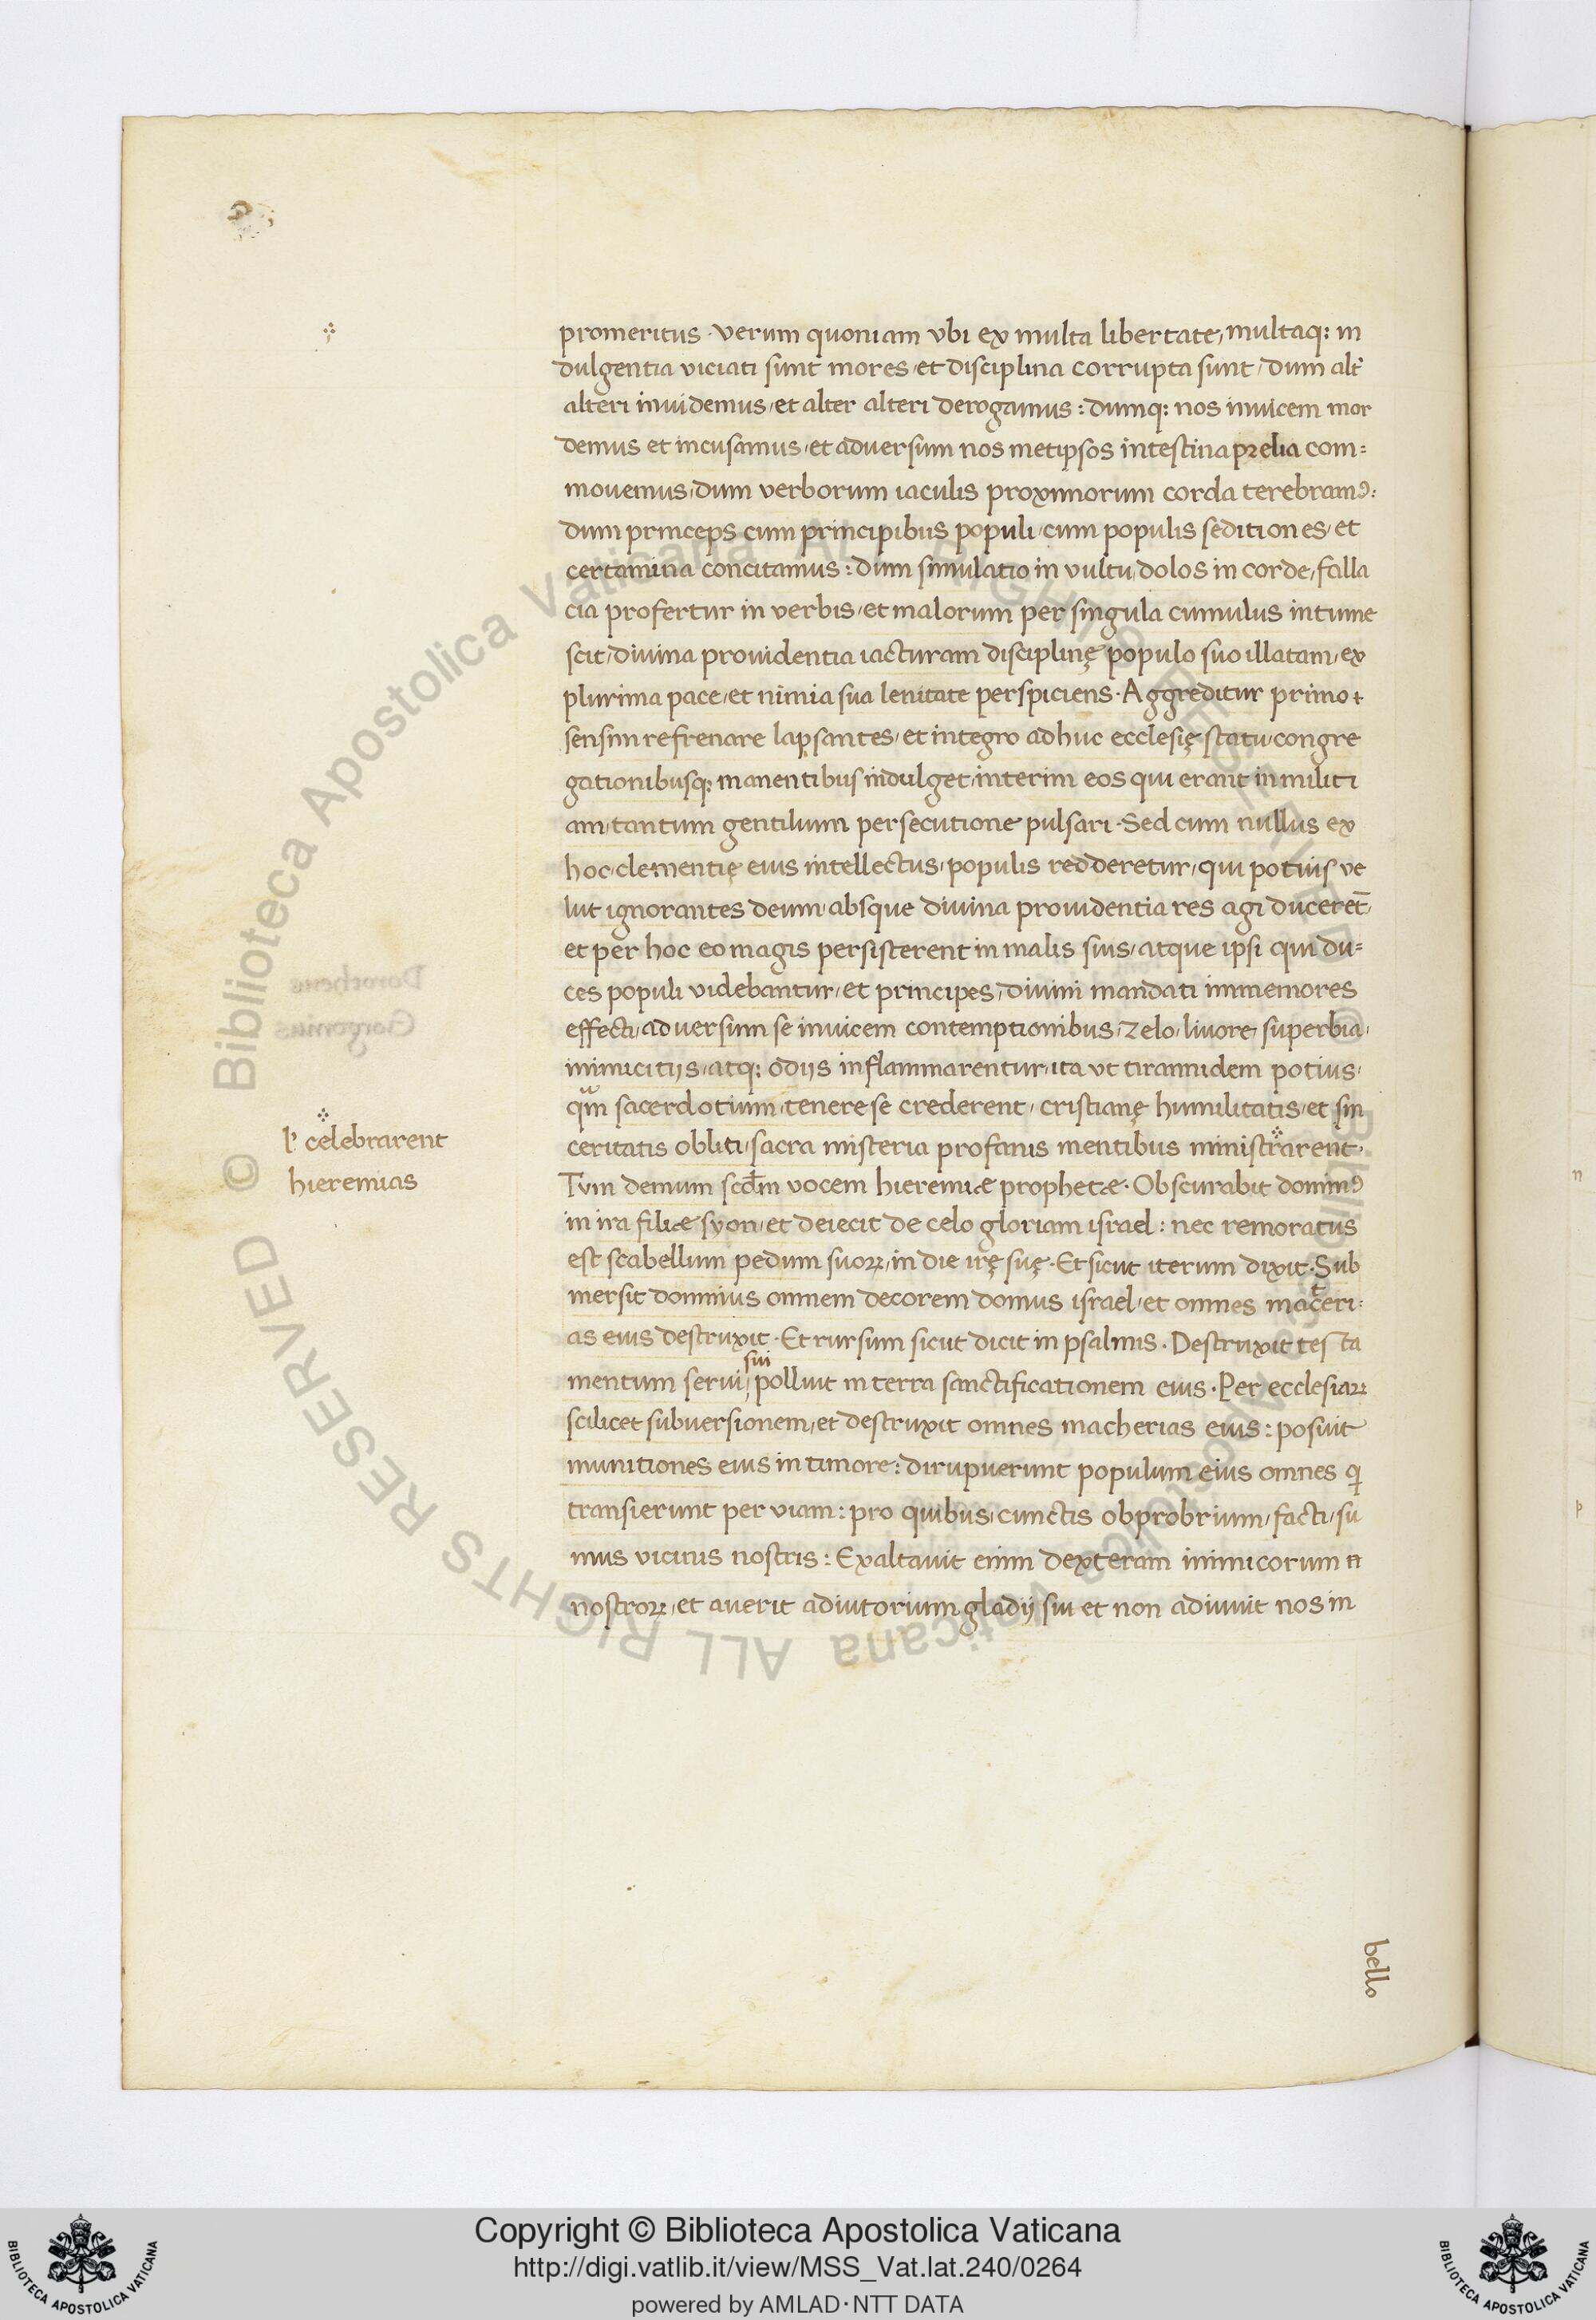 promeritus · verum quoniam vbi ex multa libertate, multaq; in
dulgentia viciati sunt mores, et disciplina corrupta sunt, dum alt̄
alteri inuidemus, et alter alteri derogamus : dumq; nos inuicem mor
demus et incusamus, et aduersum nos metipsos intestina prelia com=
mouemus, dum verborum iaculis proximorum corda terebramꝰ :
dum princeps cum principibus populi, cum populis seditiones, et
certamina concitamus : dum simulatio in vultu, dolos in corde, falla
cia profertur in verbis, et malorum per singula cumulus intume
scit, diuina prouidentia iacturam disciplinę populo suo illatam, ex
plurima pace, et nimia sua lenitate perspiciens · Aggreditur primo
sensim refrenare lapsantes, et integro adhuc ecclesię statu, congre
gationibusq; manentibus indulget, interim eos qui erant in militi
am, tantum gentilium persecutione pulsari · Sed cum nullus ex
hoc, clementię eius intellectus, populis redderetur, qui potuis ve
lut ignorantes deum, absque diuina prouidentia res agi ducerēt,
et per hoc eo magis persisterent in malis suis, atque ipsi qui du=
ces populi videbantur, et principes, diuini mandati immemores
effecti, aduersum se inuicem contemptionibus, zelo, liuore, superbia,
inimicitijs, atq; odijs inflammarentur, ita vt tirannidem potius,
qᵃm sacerdotium, tenere se crederent, cristianę humilitatis, et sin
l' celebrarent
ceritatis obliti, sacra misteria profanis mentibus ministrarent,
hieremias
Tvm demum scd̄m vocem hieremiæ prophetæ · Obscurabit dominꝰ
in ira filiæ syon, et deiecit de celo gloriam israel : nec remoratus
est scabellum pedum suoꝝ, in die irę suę · Et sicut iterum dixit · Sub
mersit dominus omnem decorem domus israel, et omnes maceri=
t
as eius destruxit · Et rursum sicut dicit in psalmis · Destruxit testa
sui
mentum serui, polluit in terra sanctificationem eius · Per ecclesiaꝝ
scilicet subuersionem, et destruxit omnes macherias eius : posuit
munitiones eius in timore : dirupuerunt populum eius omnes qi
transierunt per viam : pro quibus, cunctis obprobrium, facti, su
mus vicinis nostris : Exaltauit enim dexteram inimicorum n
nostroꝝ, et auerit adiutorium gladij sui et non adiuuit nos in
bello
Dorotheus
Gorgonius
© Biblioteca Apostolica Vaticana ALL RIGHTS RESERVED
Copyright © Biblioteca Apostolica Vaticana
http://digi.vatlib.it/view/MSS_Vat.lat.240/0264
powered by AMLAD·NTT DATA
BIBLIOTECA APOSTOLICA VATICANA
BIBLIOTECA APOSTOLICA VATICANA